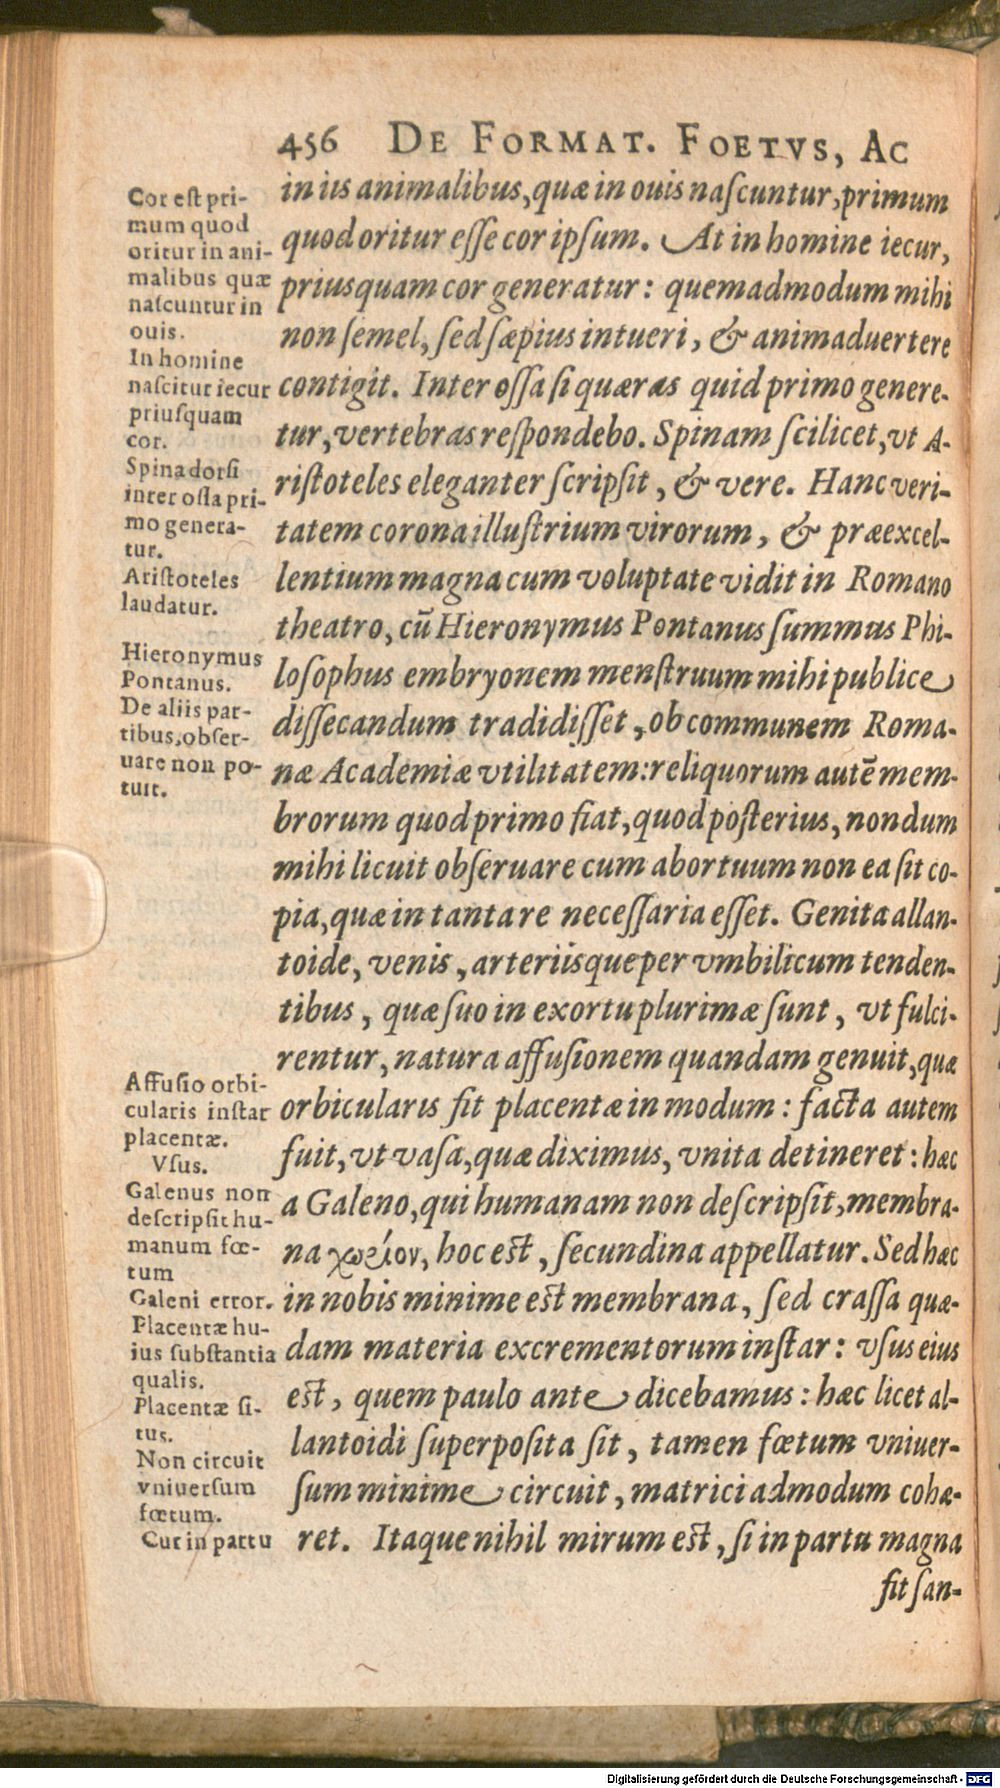 456 DE FORMAT. FOETVS, AC
in iis animalibus, quæ in ouis naſcuntur, primum
quod oritur eſſe cor ipſum. At in homine iecur,
priusquam cor generatur: quemadmodum mihi
non ſemel, ſed ſæpius intueri, & animaduertere
contigit. Inter oſſa ſi quæras quid primo genere-
tur, vertebras reſpondebo. Spinam ſcilicet, vt A-
riſtoteles eleganter ſcripſit, & vere. Hanc veri-
tatem corona illuſtrium virorum, & præexcel-
lentium magna cum voluptate vidit in Romano
theatro, cū Hieronymus Pontanus ſummus Phi-
loſophus embryonem menſtruum mihi publice
diſſecandum tradidiſſet, ob communem Roma-
næ Academiæ vtilitatem: reliquorum autē mem-
brorum quod primo fiat, quod poſterius, nondum
mihi licuit obſeruare cum abortuum non ea ſit co-
pia, quæ in tanta re neceſſaria eſſet. Genita allan-
toide, venis, arteriisque per vmbilicum tenden-
tibus, quæ ſuo in exortu plurimæ ſunt, vt fulci-
rentur, natura affuſionem quandam genuit, quæ
orbicularis fit placentæ in modum: facta autem
fuit, vt vaſa, quæ diximus, vnita detineret: hæc
a Galeno, qui humanam non deſcripſit, membra-
na χωείον, hoc eſt, ſecundina appellatur. Sed hæc
in nobis minime eſt membrana, ſed craſſa quæ-
dam materia excrementorum inſtar: vſus eius
eſt, quem paulo ante dicebamus: hæc licet al-
lantoidi ſuperpoſita ſit, tamen fœtum vniuer-
ſum minime circuit, matrici admodum cohæ-
ret. Itaque nihil mirum eſt, ſi in partu magna
fit ſan-
Cor eſt pri-
mum quod
oritur in ani-
malibus quæ
naſcuntur in
ouis.
In homine
naſcitur iecur
priuſquam
cor.
Spina dorſi
inter oſſa pri-
mo genera-
tur.
Ariſtoteles
laudatur.
Hieronymus
Pontanus.
De aliis par-
tibus, obſer-
uare non po-
tuit.
Affuſio orbi-
cularis inſtar
placentæ.
Vſus.
Galenus non
deſcripſit hu-
manum fœ-
tum
Galeni error.
Placentæ hu-
ius ſubſtantia
qualis.
Placentæ ſi-
tus.
Non circuit
vniuerſum
fœtum.
Cur in partu
Digitalisierung gefördert durch die Deutsche Forschungsgemeinschaft - DFG